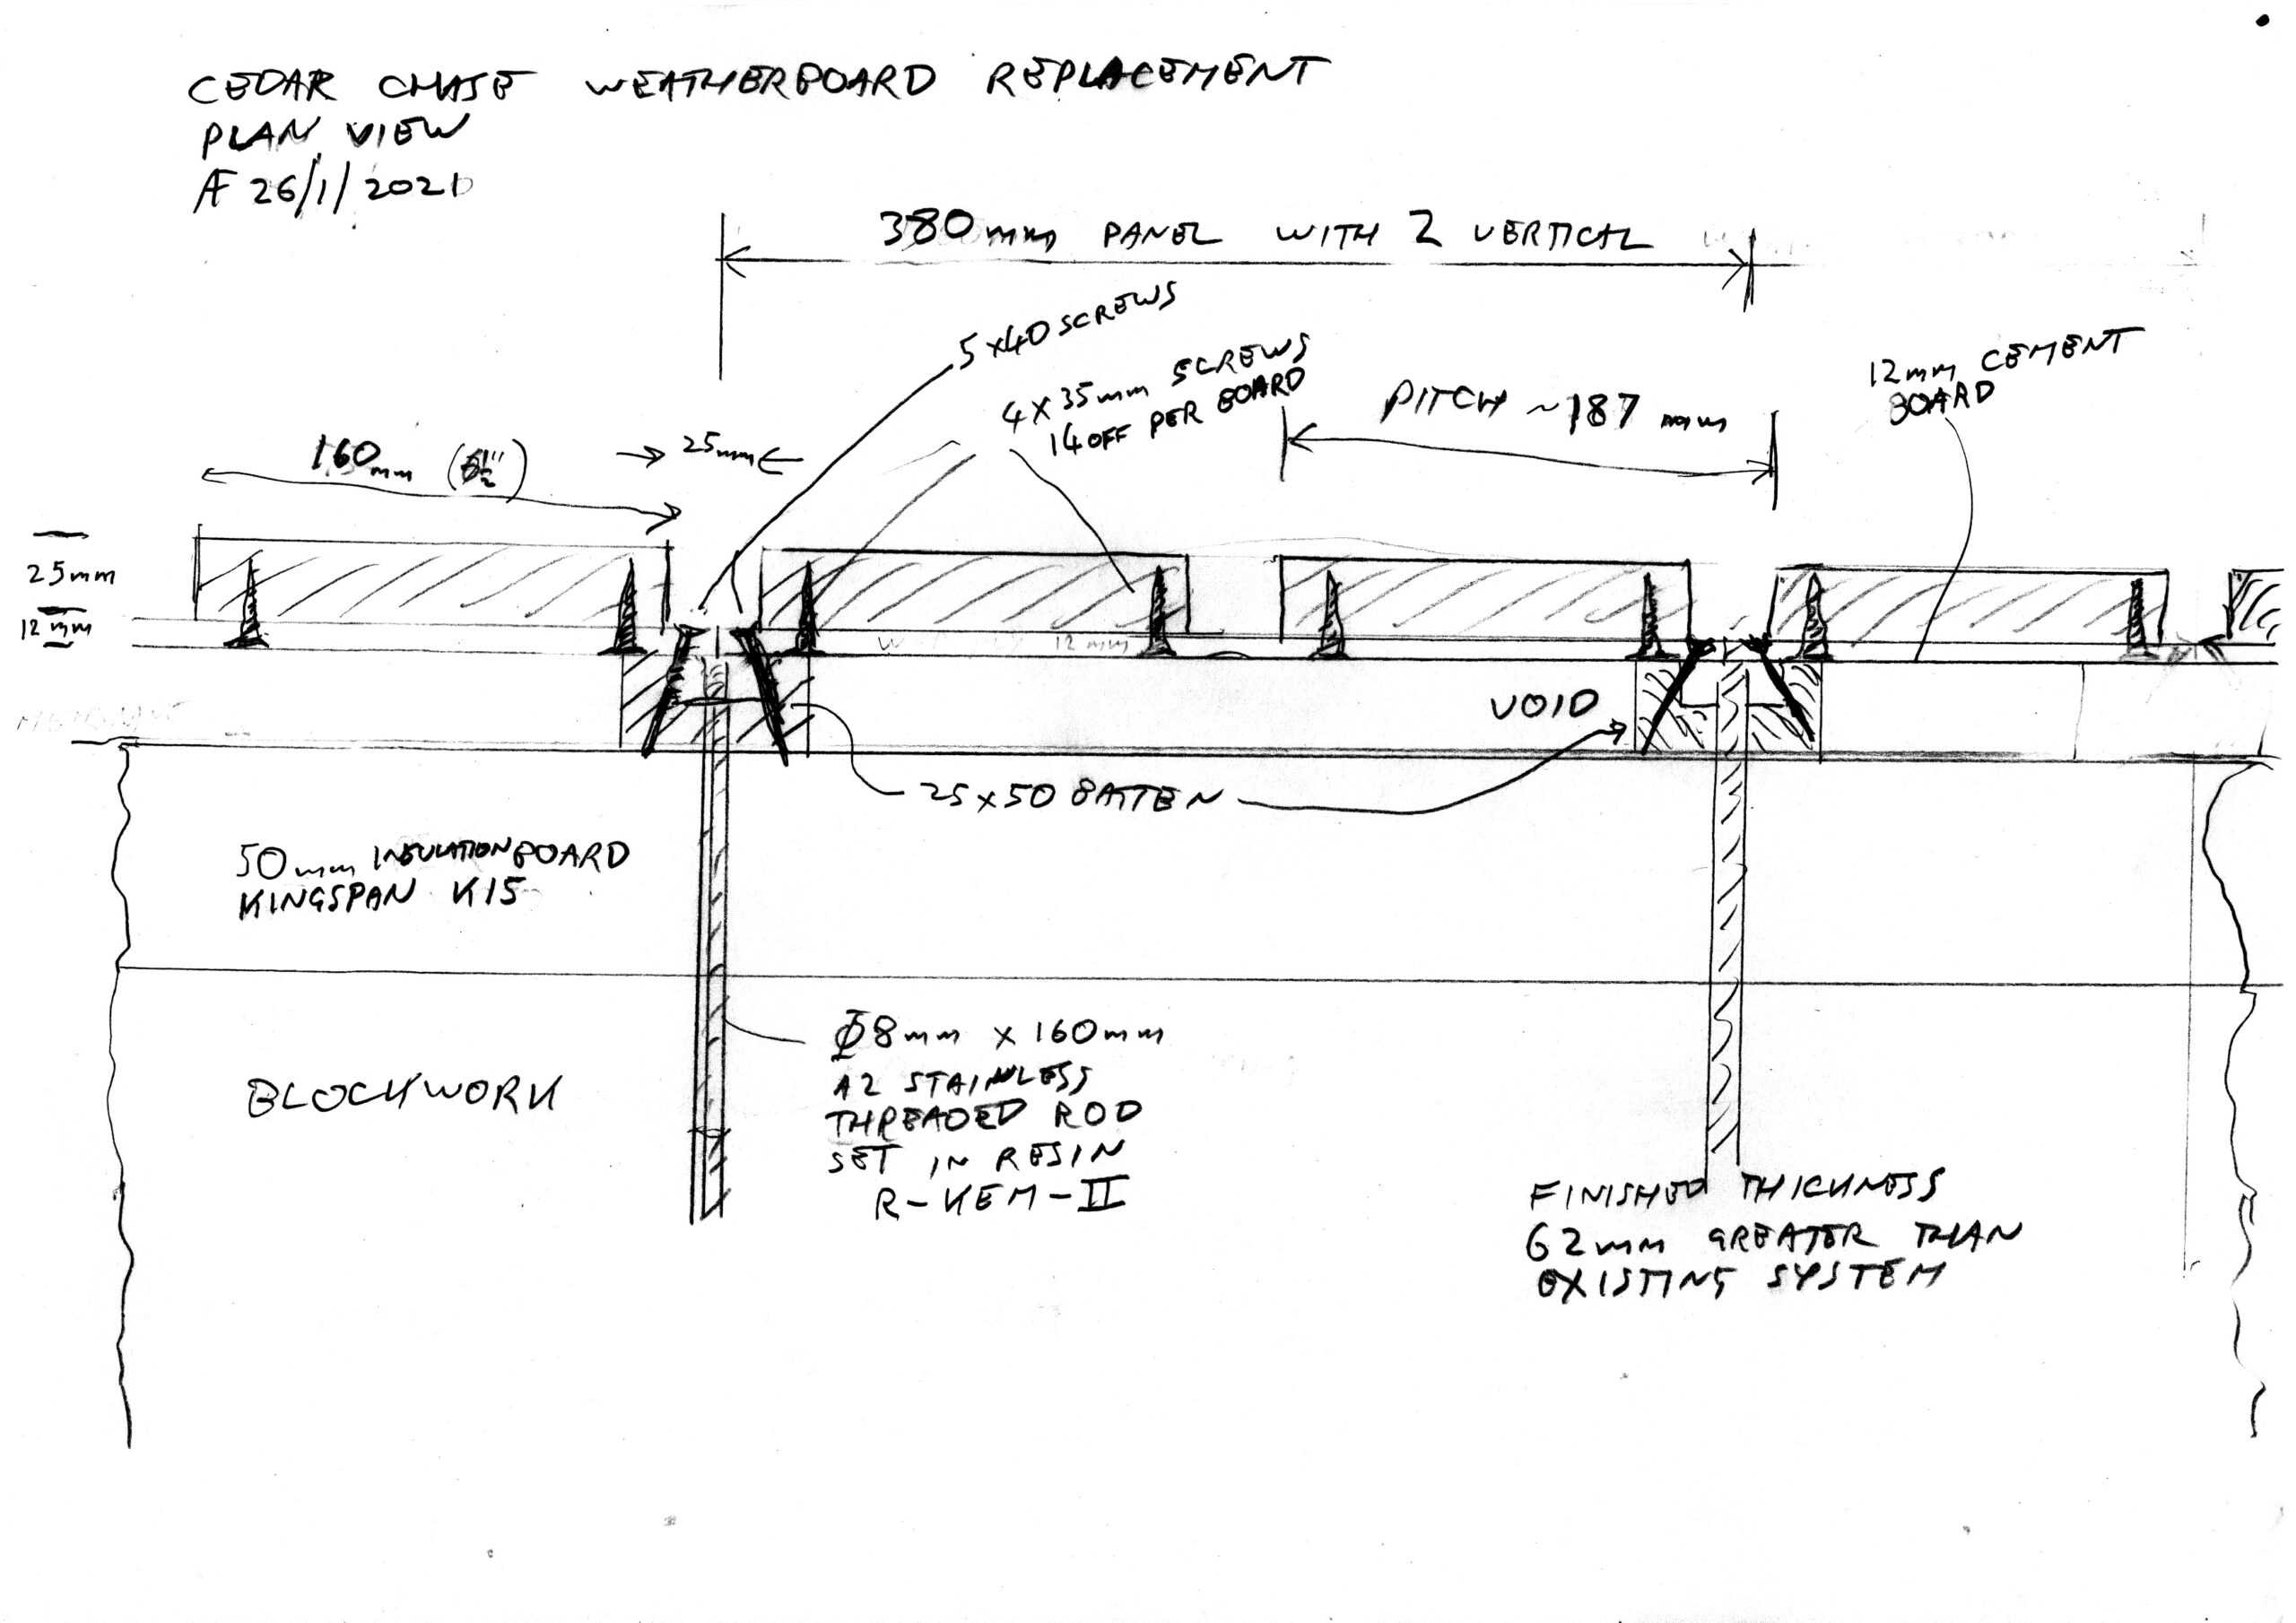 CEDAR CHASE WEATHERBOARD REPLACEMENT
PLAN VIEW
AF 26/1/2021
380mm PANEL WITH 2 VERTICAL
5x40 SCREWS
4 x 35mm SCREWS
14 OFF PER BOARD
PITCH ~187 mm
12mm CEMENT
BOARD
160mm (6½")
25mm
25mm
12mm
12mm
VOID
25x50 BATTEN
50mm INSULATION BOARD
KINGSPAN K15
BLOCKWORK
Φ8mm x 160mm
A2 STAINLESS
THREADED ROD
SET IN RESIN
R-KEM-II
FINISHED THICKNESS
62mm GREATER THAN
EXISTING SYSTEM